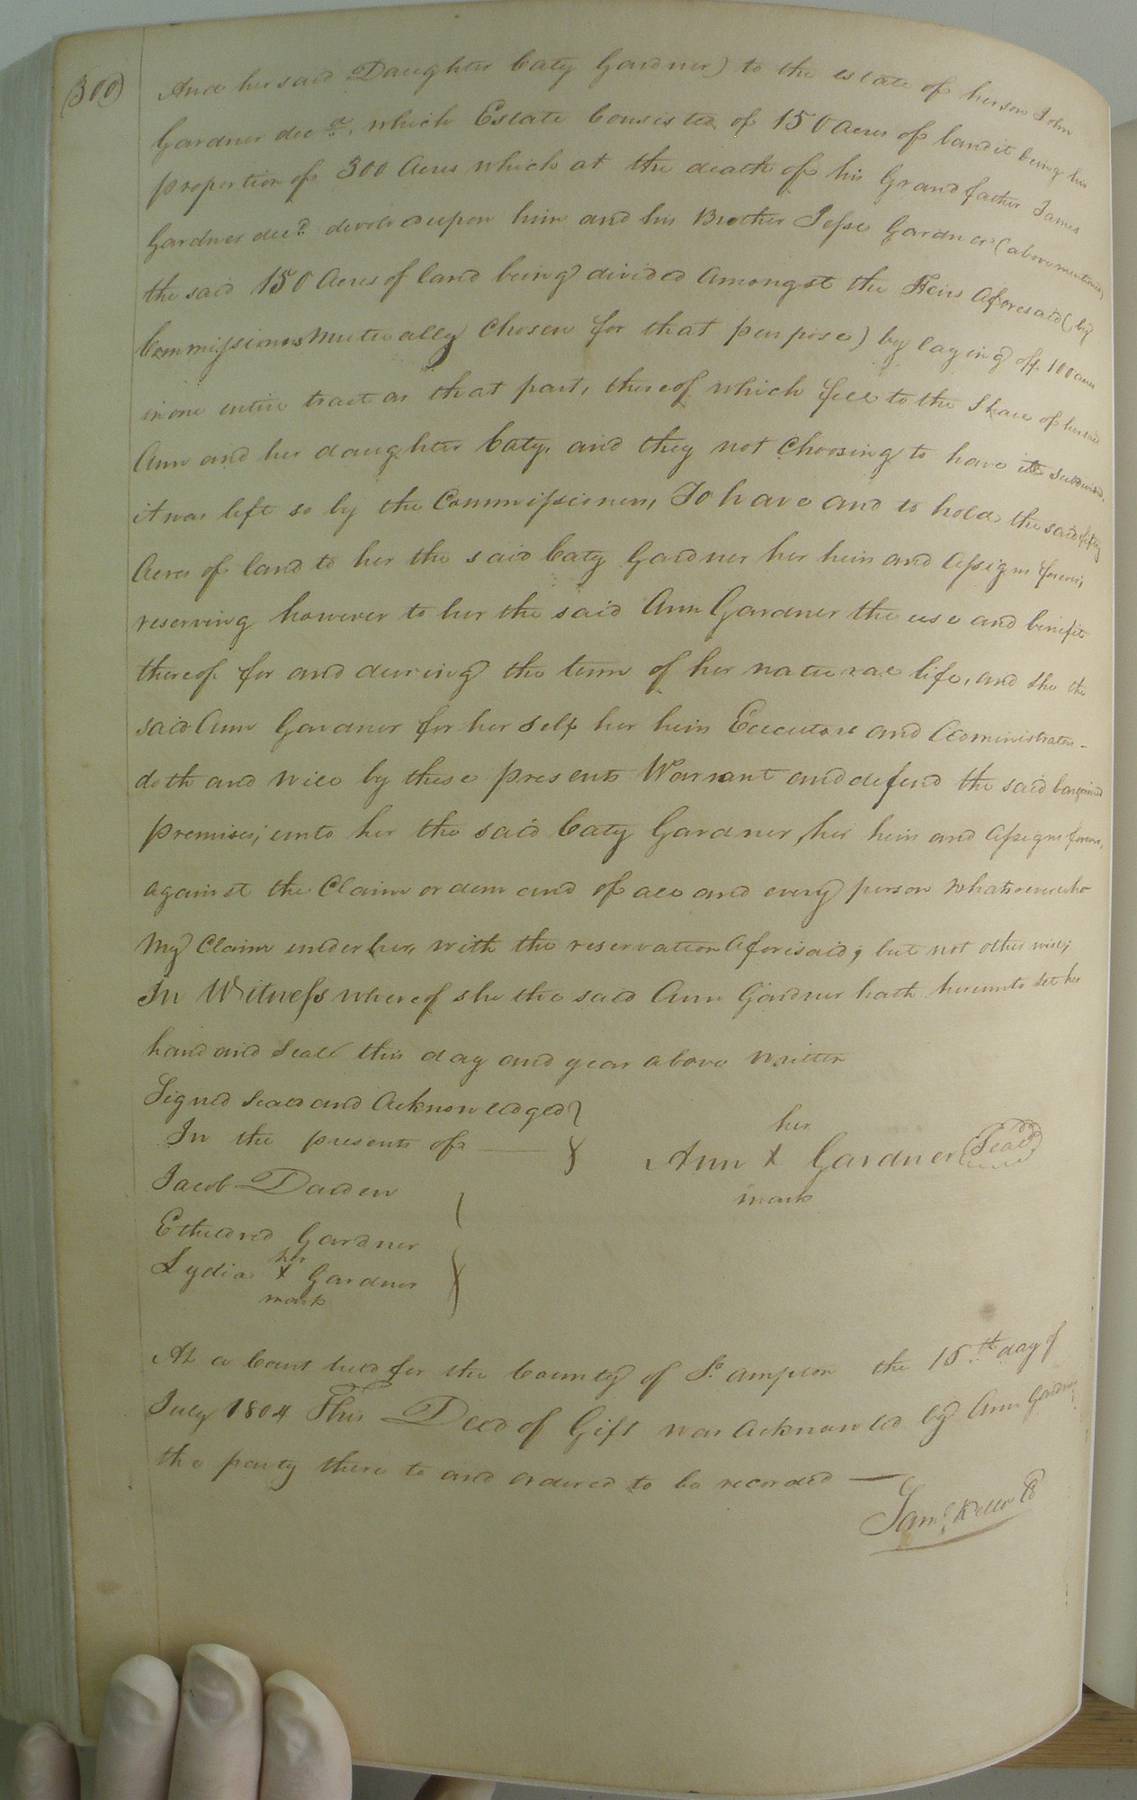 (300)
And her said Daughter Caty Gardner) to the estate of her son John
Gardner decd. which Estate Consisted of 150 Acres of land it being his
proportion of 300 Acres which at the death of his Grandfather James
Gardner decd. devolved upon him and his Brother Jesse Gardner (above mentioned)
the said 150 Acres of land being divided Amongst the Heirs Aforesaid (by
Commissioners Mutually Chosen for that purpose) by laying off 100 acres
in one entire tract as that part, thereof which fell to the Share of her said
Ann and her daughter Caty. and they not Choosing to have it Subdivided.
it was left so by the Commissioners, To have and to hold the said fifty
Acres of land to her the said Caty Gardner her heirs and Assigns forever,
reserving however to her the said Ann Gardner the use and benifit
thereof for and during the term of her natural life, and she the
said Ann Gardner for her self her heirs Executors and Administrators
doth and will by these presents Warrant and defend the said bargained
premises, unto her the said Caty Gardner, her heirs and Assigns forever,
against the Claim or demand of all and every person whatsoever who
My Claim under her, with the reservation Aforesaid, but not other wise,
In Witness whereof she the said Ann Gardner hath hereunto set her
hand and Seal this day and year above written
Signed Seald and Acknowledged
In the presents of
her
Ann X Gardner (Seal)
mark
Jacob Darden
Etheldred Gardner
her
Lydia X Gardner
mark
At a Court held for the County of Sampson the 15th day of
July 1804 This Deed of Gift was Acknowled by Ann Gardner
the party there to and ordered to be recorded
Saml.